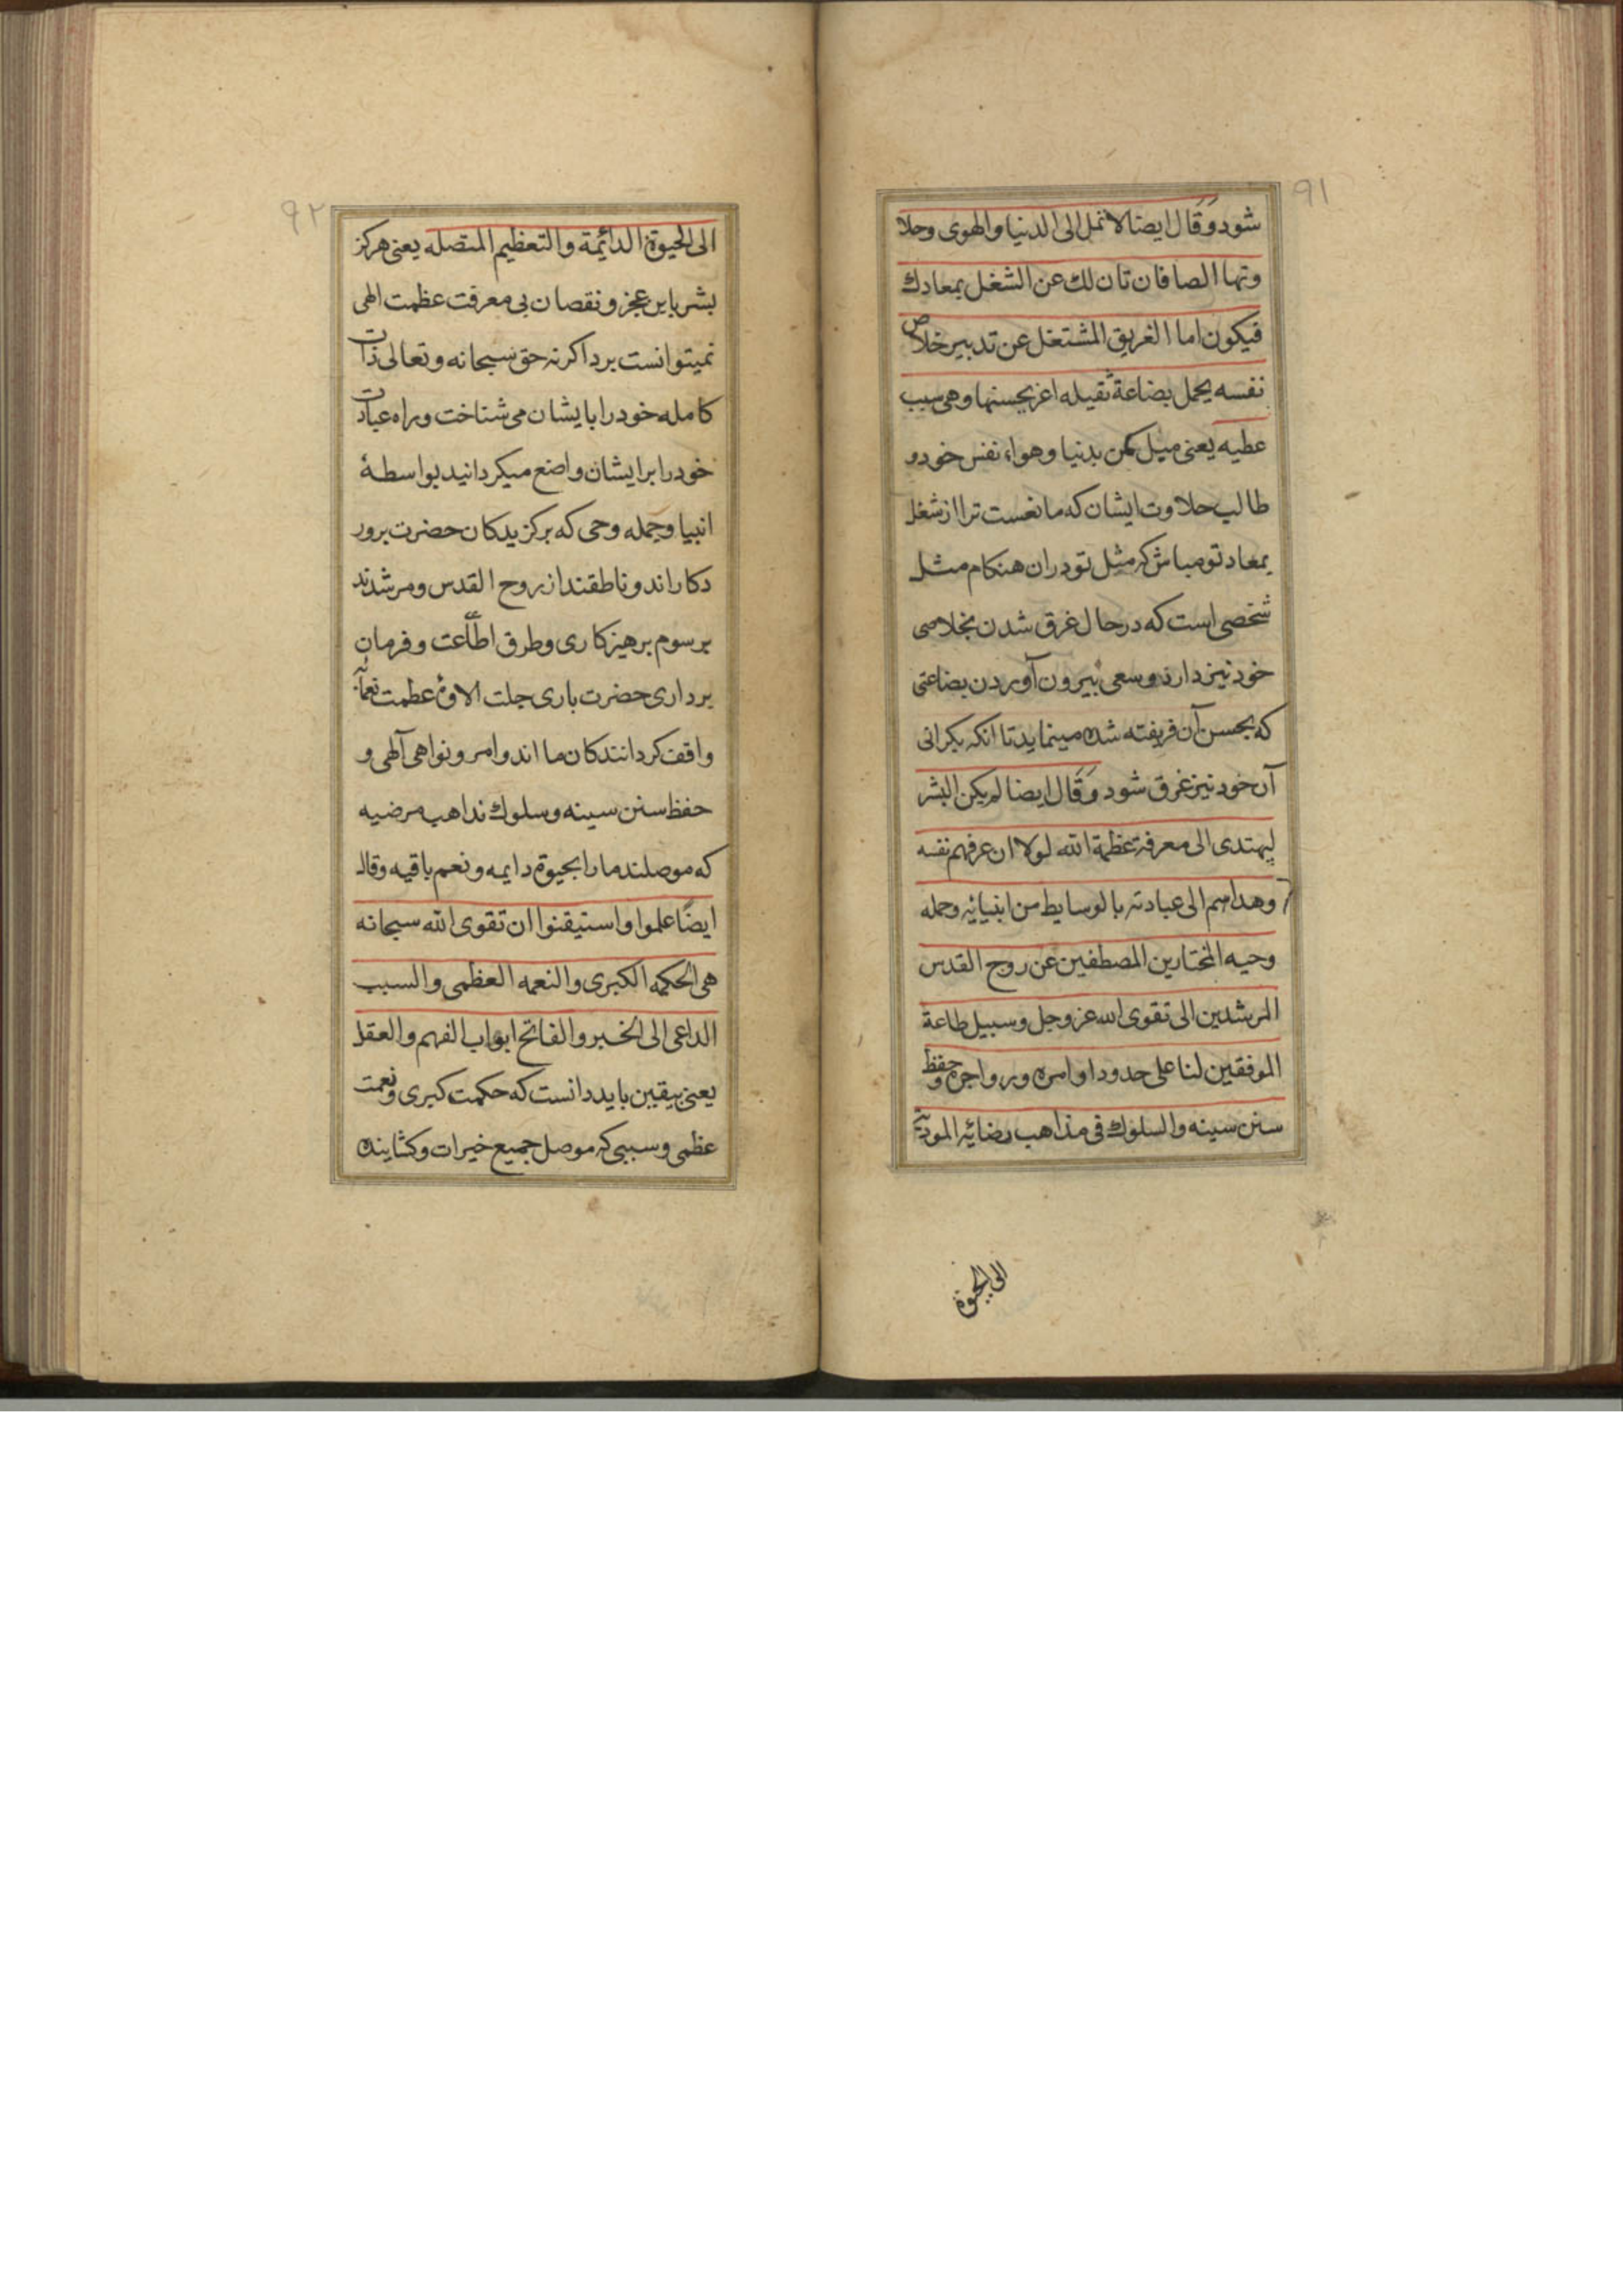 ۹۱
شود وَقَال ايضا لا تمل الى الدنيا والهوى وحلا
وتها الصافان تان لك عن الشغل بمعادك
فيكون اما الغريق المشتغل عن تدبير خلاص
نفسه يحمل بضاعة ثقيله اغر بحسنها وهى سبب
عطيه يعنى ميل مكن بدنيا وهواء نفس خود و
طالب حلاوت ايشان كه مانعست ترا از شغل
بمعاد تو مباش كه مثل تو دران هنكام مثل
شخصى است كه در حال غرق شدن بخلاصى
خود نيز دارد وسعى بيرون آوردن بضاعتى
كه بحسن آن فريفته شده مينمايد تا انكه بكرانى
آن خود نيز غرق شود وَقَال ايضا لم يكن البشر
ليهتدى الى معرفة عظمة الله لولا ان عرفهم نفسه
وهداهم الى عبادته بالوسايط من انبيائه وحمله
وحيه المختارين المصطفين عن روح القدس
المرشدين الى تقوى الله عز وجل وسبيل طاعة
الموفقين لنا على حدود اوامره وزواجره وحفظ
سنن سينه والسلوك فى مذاهب رضائه الموديّة
الى الحيوة
۹۲
الى الحيوة الدائمة والتعظيم المتصله يعنى هركز
بشر باين عجز ونقصان پى معرفت عظمت الهى
نميتوانست برد اكر نه حق سبحانه وتعالى ذات
كامله خود را بايشان مى شناخت وراه عبادت
خود را بر ايشان واضع ميكردانيد بواسطهٔ
انبيا وحمله وحى كه بركزيدكان حضرت پرور
دكاراند وناطقند از روح القدس ومرشدند
برسوم پرهيزكارى وطرق اطاعت وفرمان
بردارى حضرت بارى جلت الاؤه عظمت نعمائه
واقف كردانندكان ما اند وامر ونواهى آلهى و
حفظ سنن سينه وسلوك نداهب مرضيه
كه موصلند ما را بحيوة دايمه ونعم باقيه وقال
ايضًا علموا واستيقنوا ان تقوى الله سبحانه
هى الحكمه الكبرى والنعمه العظمى والسبب
الداعى الى الخير والفاتح ابواب الفهم والعقل
يعنى بيقين بايد دانست كه حكمت كبرى ونعمت
عظمى وسببى كه موصل جميع خيرات وكشاينده